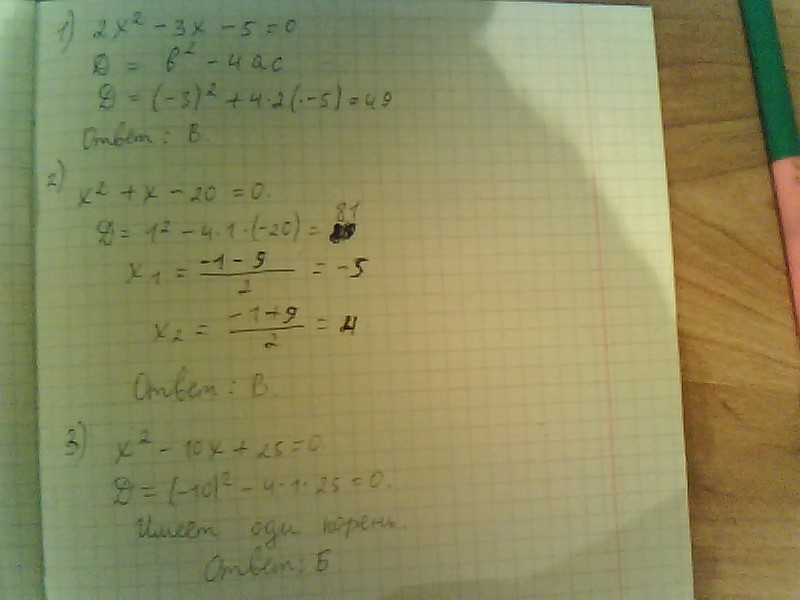 1) 2x² - 3x - 5 = 0
D = b² - 4ac
D = (-3)² + 4·2(·-5) = 49
Ответ: В
2) x² + x - 20 = 0.
D = 1² - 4·1·(-20) = 81
x₁ = (-1-9)/2 = -5
x₂ = (-1+9)/2 = 4
Ответ: В
3) x² - 10x + 25 = 0
D = (-10)² - 4·1·25 = 0.
Имеет оди корень.
Ответ: Б